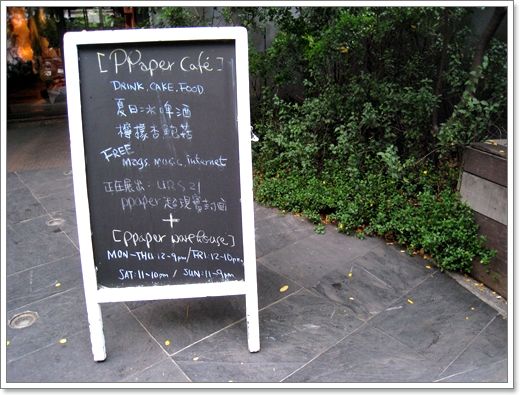 [PPaper Café]
DRINK. CAKE. FOOD
夏日冰啤酒
檸檬杏鮑菇
FREE
mags. music. Internet
正在展出: URS21
ppaper 超現實封面
+
[Ppaper warehouse]
MON-THU:12-9pm/FRI:12-10pm
SAT:11-10pm / SUN:11-9pm